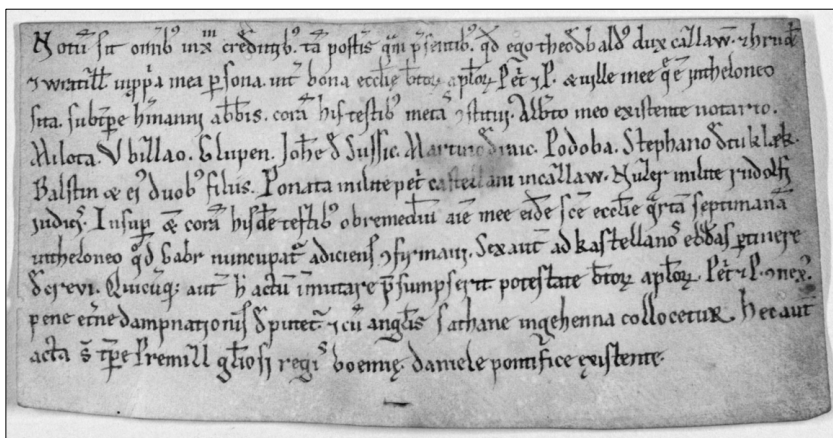 Notū sit omīb᷒ inx̄ credītib᷒. tā post̄is q̄m p̄sentib᷒. qd̄ ego theodbald᷒ dux
mea ꝑsona. bona ecclīe btōꝝ aplōꝝ. Pet̄ ⁊ P. & uille mee intheloneo
sita. sub tp̄e h̄manni abb̄is. corā his testib᷒ metā᷒ ꝯstitui. Alb̄to meo existente notario.
Milota. Vbillao. Glupen. Joh̄e đ Sussic. Martino Podoba. Stephano
Balstin & ei᷒ duob᷒ filiis. Ponata milite pet̄ castellani incallaw. milite rudolfi
iudicis. Insuꝑ & corā hisdē testib᷒ ob remediū aīe mee eidē sc̄e ecclīe q̄rtā septimanā
intheloneo qd̄ Gabr nuncupat᷒ adiciens ꝯfirmaui. Sex aut̄ ad kastellano᷒ ebđas ꝑtinere
đcreui. Quicūq; aut̄ h̄ actū īmutare p̄sumpserit potestate btōꝝ aplōꝝ. Pet̄ ⁊ P. ꝯnex᷒
pene et̄ne dampnationis đputet᷒ ⁊ cū anglīs sathane ingehenna collocetur. Hec aut̄
acta s̄ tp̄e Premill glīosi regis boemię. daniele pontifice existente.